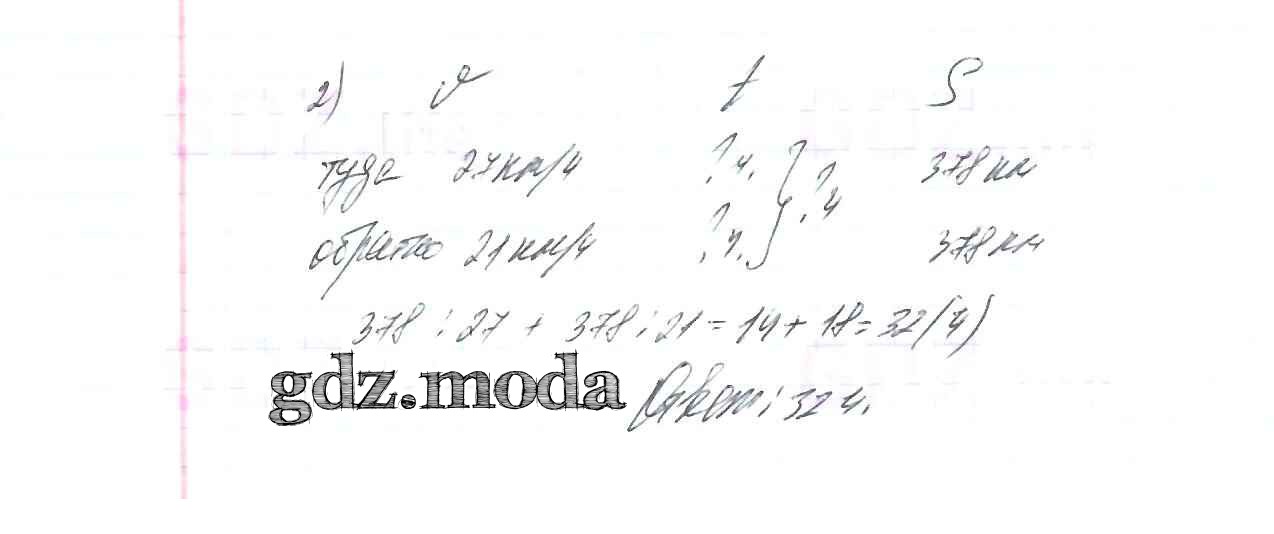 2) v t S
туда 27 км/ч ? ч. } ? ч 378 км
обратно 21 км/ч ? ч. 378 км
378 : 27 + 378 : 21 = 14 + 18 = 32 (ч)
gdz.moda Ответ: 32 ч.